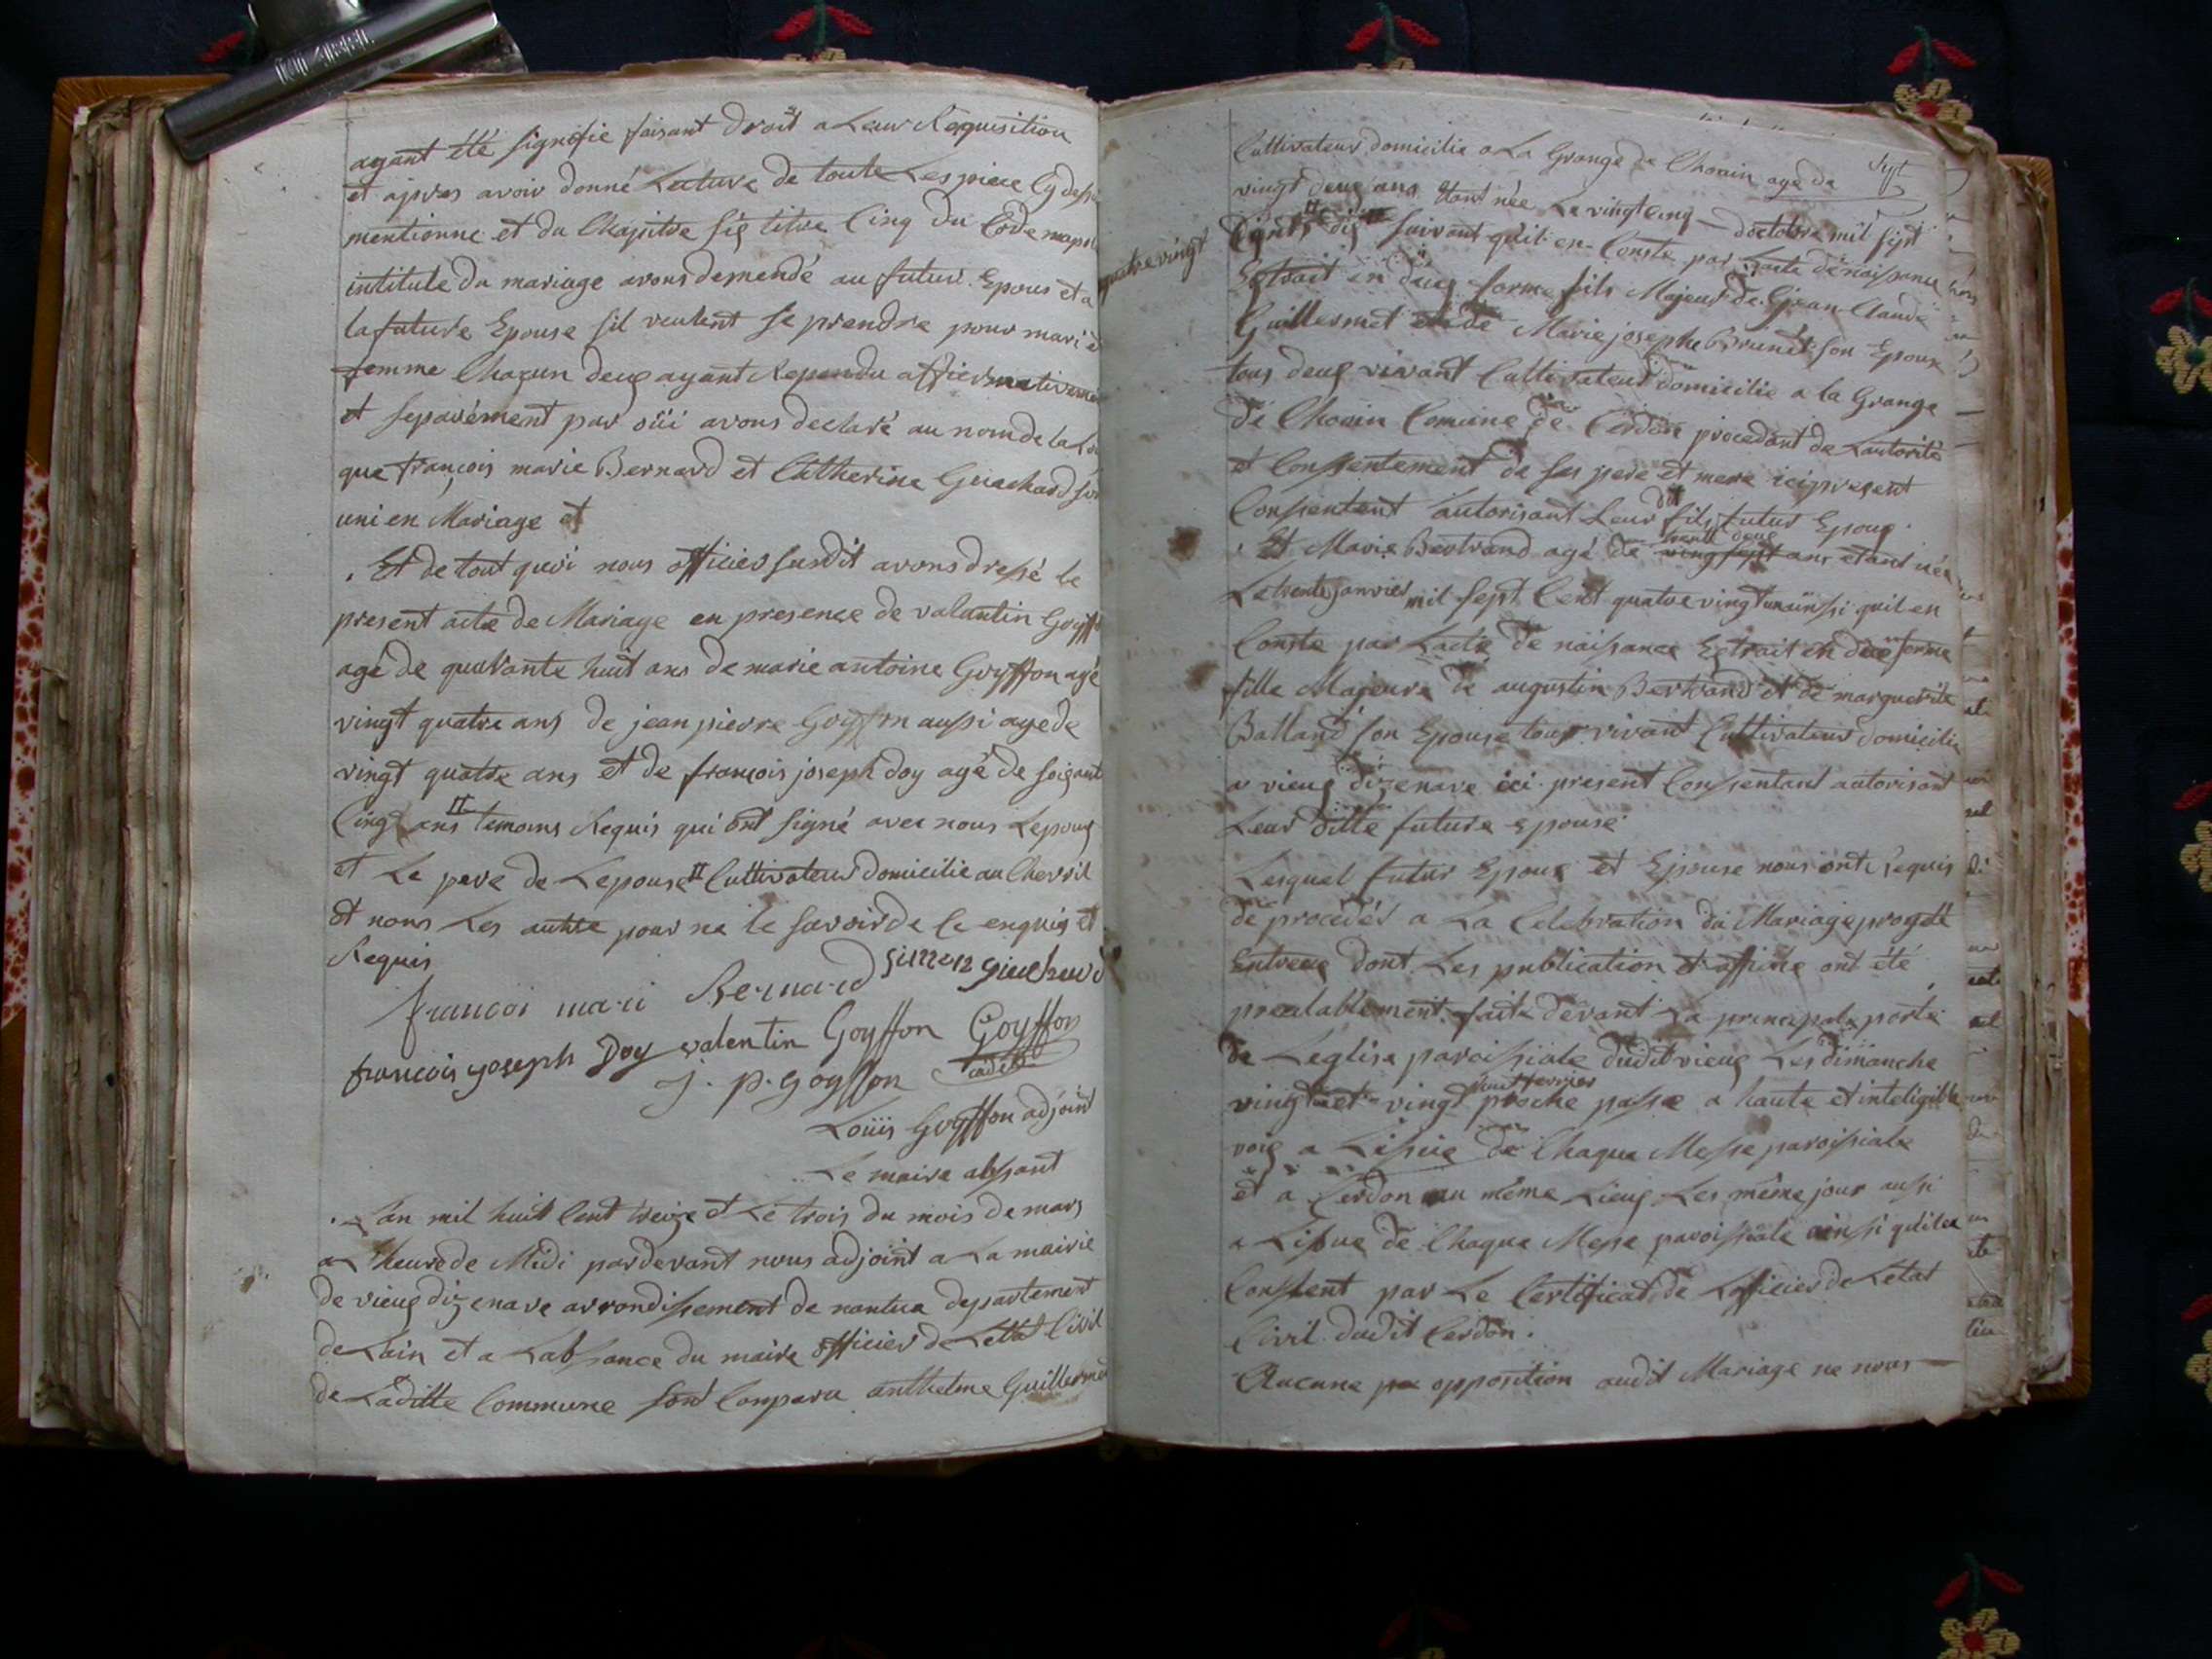 ayant été signifie faisant droit a Leur Requisition
et apres avoir donné Lecture de toute Les piece Cy dessu
mentionne et du Chapitre six titre Cinq du Code napol
intitule du mariage avons demendé au futur Epoux et a
la future Epouse sil veulent se prendre pour mari et
femme Chacun deux ayant Rependu affirmativeme
et sepavément par oüi avons declaré au nom de la Loi
que françois marie Bernard et Catherine Guichard son
uni en Mariage et
. Et de tout quoi nous officier susdit avons dressé le
present acte de Mariage en presence de valantin Goyff
agé de quarante huit ans de marie antoine Goyffon agé
vingt quatre ans de jean pierre Goyffon aussi age de
vingt quatre ans et de françois joseph doy agé de soixante
Cinq ans # temoins Requis qui ont signé avec nous Lepoux
et Le pere de Lepouse # Cultivateur domicilie au Chevril
et nons Les autre pour ne le savoir de ce enquis et
Requis
francoi mari Bernard simon guichard
francois joseph Doy valentin Goyffon Goyffon
j. p. goyffon cadet
Loüis Goyffon adjoint
Le maire absant
. Lan mil huit Cent treize et Le trois du mois de mars
a L heure de Midi pardevant nous adjoint a La mairie
de vieux dizenave arrondissement de nantua departement
de Lain et a Labsance du maire officier de Letat Civil
de Laditte Commune sont Comparu anthelme Guillermet
Cultivateur domicilie a La Grange de Chovin agé de sept
vingt deux ans etant née Le vingt cinq doctobre mil sept
quatre vingt
Cents # dix suivant quil en Conste par Lacte de naissance
Extrait en deux forme fils Majeur de Jean Claude
Guillermet et de Marie josephe Brunet son Epouse
tous deux vivant Cultivateur domicilie a la Grange
de Chovin Comune de Cerdon procedant de Lautorité
et Consentement de ses pere et mere ici present
Consentant autorisant Leur dit fils futur Epoux.
. Et Marie Bertrand agé de trente deux ving sept ans etant née
Le trente janvier mil sept Cent quatre vingt un ainsi quil en
Conste par Lacte de naissance Extrait en due forme
fille Majeure de augustin Bertrand et de marguerite
Balland son Epouse tous vivant Cultivateur domicilie
a vieux dizenave ici present Consentant autorisant
Leur ditte future epouse
Lesquel futur Epoux et Epouse nous ont Requis
de procédér a La Celebration du Mariage progeté
Entreux dont Les publication et affiche ont été
prealablement faite devant La principale porte
de Leglise paroissiale dudit vieux Les dimanche
vingt et un et vingt huit fevrier proche passe a haute et inteligible
voix a Lissue de Chaque Messe paroissiale
et a Cerdon au même Lieux Les même jour aussi
a Lissue de Chaque Messe paroissiale ainsi quil en
Constent par Le Certificat de Lofficier de Letat
Civil dudit Cerdon.
Aucune opposition audit Mariage ne nous